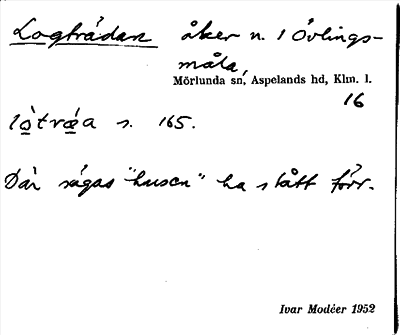 Logträdan åker n. 1 Övlings-
måla,
Mörlunda sn, Aspelands hd, Klm. l.
16
lòtrǽa s. 165.
Där sägas "husen" ha stått förr.
Ivar Modéer 1952